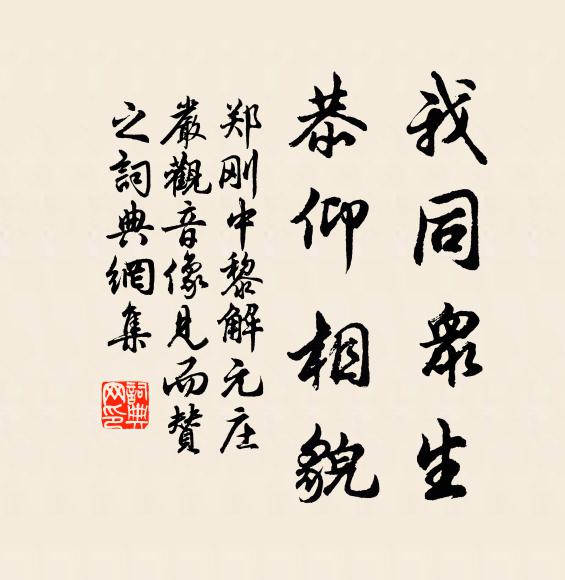 我同眾生
恭仰相貌
郑刚中黎解元庄
嚴觀音像見而贊
之詞典網集
詞典
网印